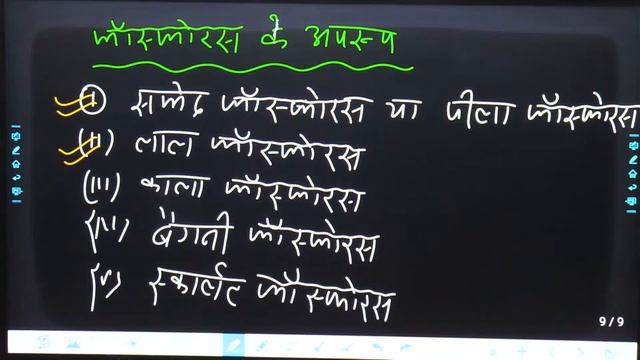 फॉस्फोरस के अपरूप
(i) सफेद फॉस्फोरस या पीला फॉस्फोरस
(ii) लाल फॉस्फोरस
(iii) काला फॉस्फोरस
(iv) बैगनी फॉस्फोरस
(v) स्कार्लेट फॉस्फोरस
9/9